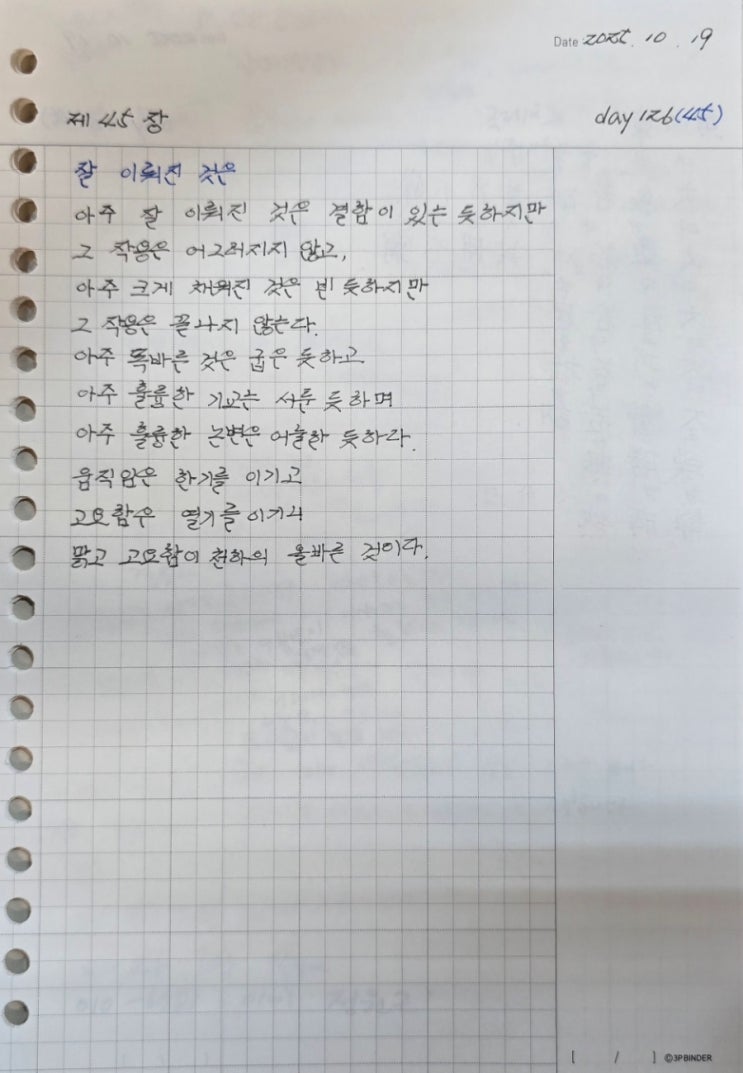 Date 2025. 10. 19
제 45 장
day 126(45)
잘 이뤄진 것은
아주 잘 이뤄진 것은 결함이 있는 듯하지만
그 작용은 어그러지지 않고,
아주 크게 채워진 것은 빈 듯하지만
그 작용은 끝나지 않는다.
아주 똑바른 것은 굽은 듯하고
아주 훌륭한 기교는 서툰 듯하며
아주 훌륭한 논변은 어눌한 듯하다.
움직임은 한기를 이기고
고요함은 열기를 이기니
맑고 고요함이 천하의 올바른 것이다.
[ / ] ©3P BINDER